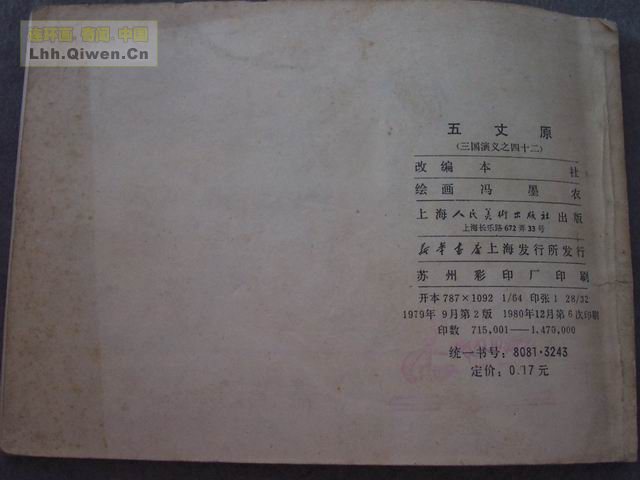 连环画.奇闻.中国
Lhh.Qiwen.Cn
五丈原
(三国演义之四十二)
改编 本社
绘画 冯墨农
上海人民美术出版社出版
上海长乐路672弄33号
新华书店上海发行所发行
苏州彩印厂印刷
开本 787×1092 1/64 印张 1 28/32
1979年9月第2版 1980年12月第6次印刷
印数 715,001—1,470,000
统一书号: 8081·3243
定价: 0.17元